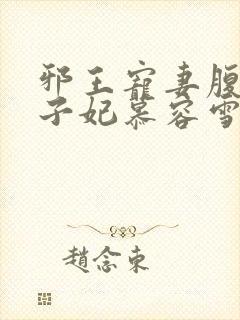 邪王寵妻腹
子妃慕容雪
趙念東